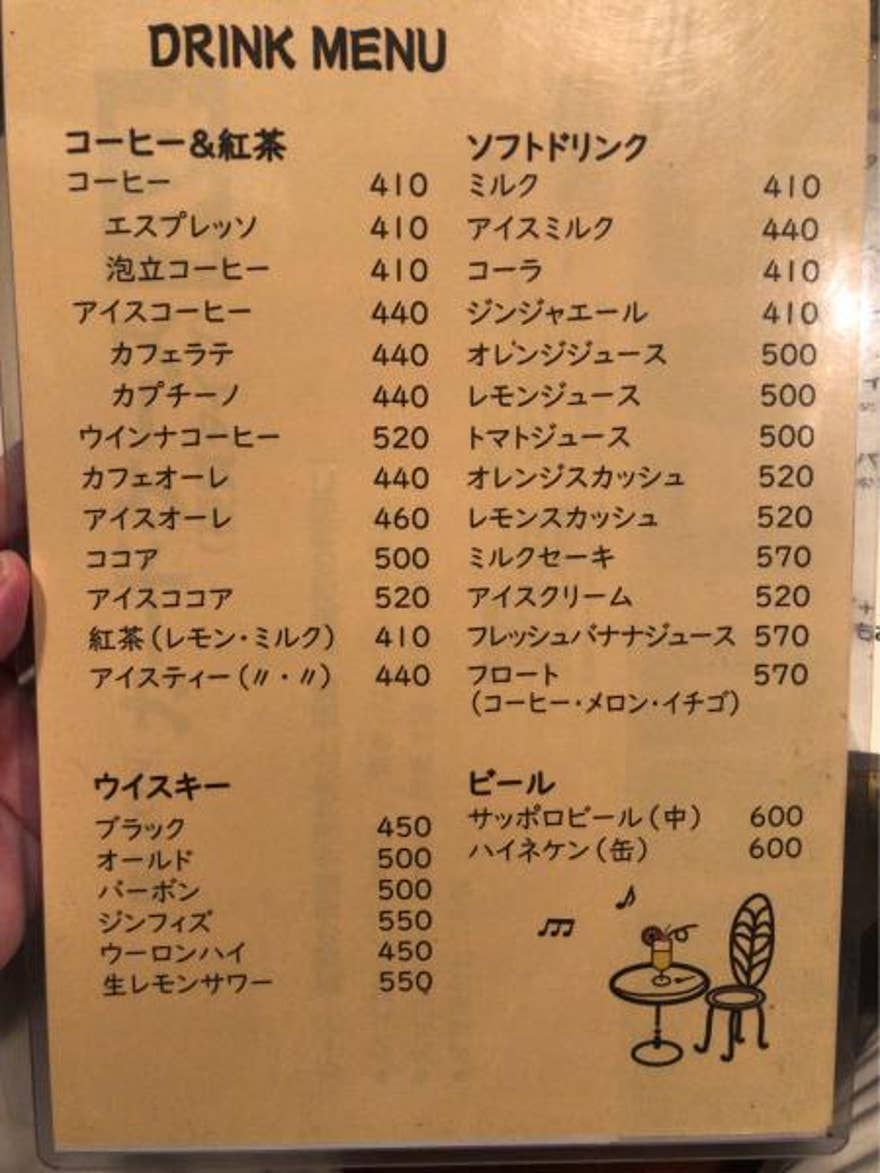 DRINK MENU
コーヒー&紅茶
コーヒー 410
エスプレッソ 410
泡立コーヒー 410
アイスコーヒー 440
カフェラテ 440
カプチーノ 440
ウインナコーヒー 520
カフェオーレ 440
アイスオーレ 460
ココア 500
アイスココア 520
紅茶(レモン・ミルク) 410
アイスティー(〃・〃) 440
ウイスキー
ブラック 450
オールド 500
バーボン 500
ジンフィズ 550
ウーロンハイ 450
生レモンサワー 550
ソフトドリンク
ミルク 410
アイスミルク 440
コーラ 410
ジンジャエール 410
オレンジジュース 500
レモンジュース 500
トマトジュース 500
オレンジスカッシュ 520
レモンスカッシュ 520
ミルクセーキ 570
アイスクリーム 520
フレッシュバナナジュース 570
フロート 570
(コーヒー・メロン・イチゴ)
ビール
サッポロビール(中) 600
ハイネケン(缶) 600